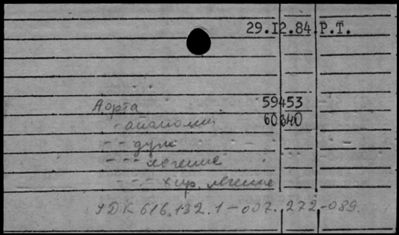 29.I2.84.Р.Т.
Аорта 59453
- аномалии 60340
- - дуги
- - - лечение
- - - - хир. лечение
УДК 616.132.1-007.272-089